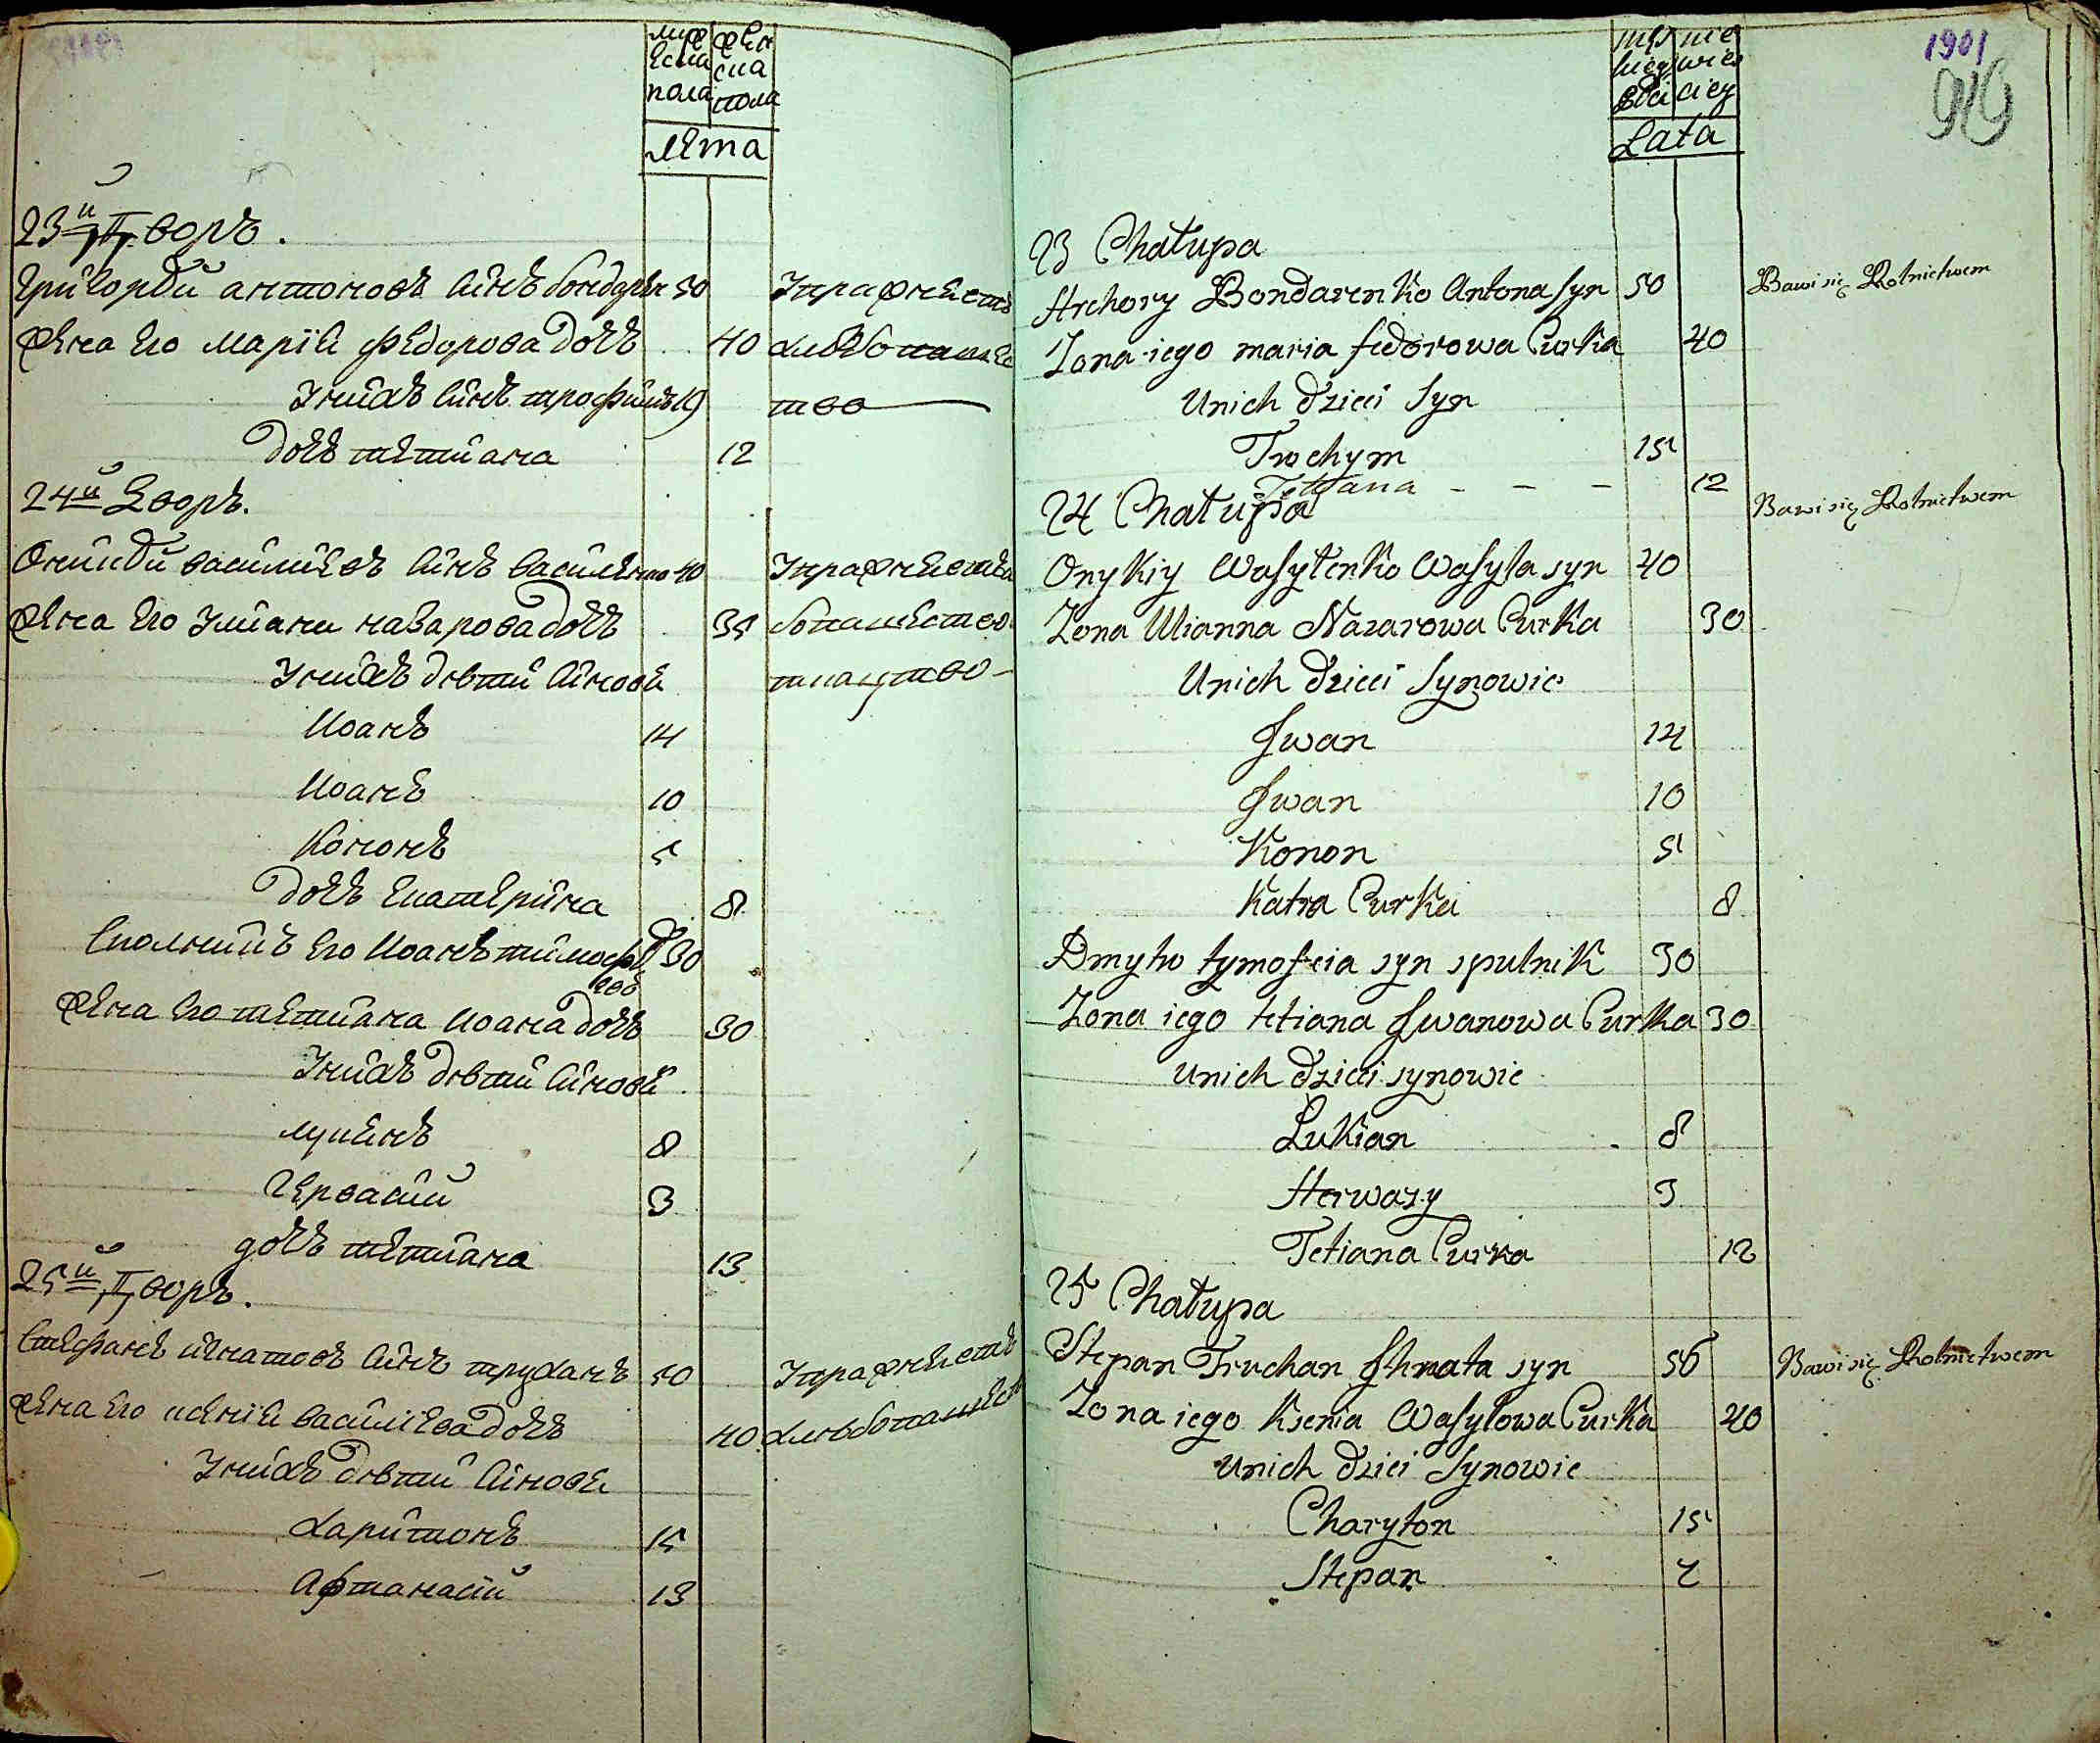 мужеска пола
женска пола
лета
23й Дворъ.
Григорѣй антоновъ синъ бондаренк 50 Упражнаетъ
жена его марія федорова дочъ 40 хлѣбопашес
У них синъ трофимъ 19 тво
дочъ тетиана 12
24й Дворъ.
Оникѣй василиевъ синъ василенко 40 Упражнаетъ
жена его улиана назарова дочъ 35 бопашество
У нихъ дѣти синове ткацтво
Иоанъ 14
Иоанъ 10
Кононъ 5
дочъ Екатерина 8
Сполникъ его Иоанъ тимофѣ
евъ 30
жена его тетиана иоана дочъ 30
У нихъ дѣти синове
лукянъ 8
Гервасій 3
дочъ тетиана 13
25й Дворъ.
Стефанъ игнатовъ синъ труханъ 50 Упражнаетъ
жена его ксенія василіева дочъ 40 хлѣбопашес
У нихъ дѣти синове
харитонъ 15
Афтанасій 13
1901
Lata
23 Chałupa
Hrehory Bondarenko Antona syn 50 Bawi się Rolnictwem
Zona iego maria fedorowa Curka 40
Unich dzieci Syn
Trochym 15
Tetiana - - - 12
24 Chałupa Bawi się Rolnictwem
Onykiy Wasyłenko Wasyla syn 40
Zona Ulianna Nazarowa Curka 30
Unich dzieci Synowie
Iwan 14
Iwan 10
Konon 5
Katra Curka 8
Dmytro tymofeia syn spulnik 30
Zona iego tetiana Iwanowa Curka 30
Unich dzieci synowie
Łukian 8
Herwasy 3
Tetiana Curka 12
25 Chałupa
Stepan Truchan Ihnata syn 56 Bawi się Rolnictwem
Zona iego Ksenia Wasylowa Curka 40
Unich dzieci Synowie
Charyton 15
Stepan 7